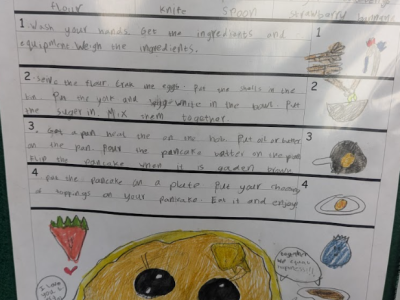 flour knife spoon strawberry
1 Wash your hands. Get the ingredients and
equipment. Weigh the ingredients.
1
2 the flour Crak the eggs. Put the shells in the
bin. Put the yolk and eggwhite in the bowl. Put
the suger in. Mix them together.
2
3 Get a pan heat the on the hob. Put oil or butter
on the pan. Pour the pancake batter on the pan
Flip the pancake when it is golden brown
3
4 put the pancake on a plate. Put your
of toppings on your pancake. Eat it and enjoy
4
together